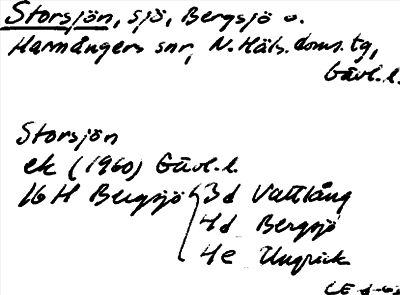 Storsjön, sjö, Bergsjö o.
Harmångers snr, N. Häls. doms. tg,
Gävl. l.
Storsjön
ek (1960) Gävl. l.
16 H Bergsjö 3d Vattlång
4d Bergsjö
4e